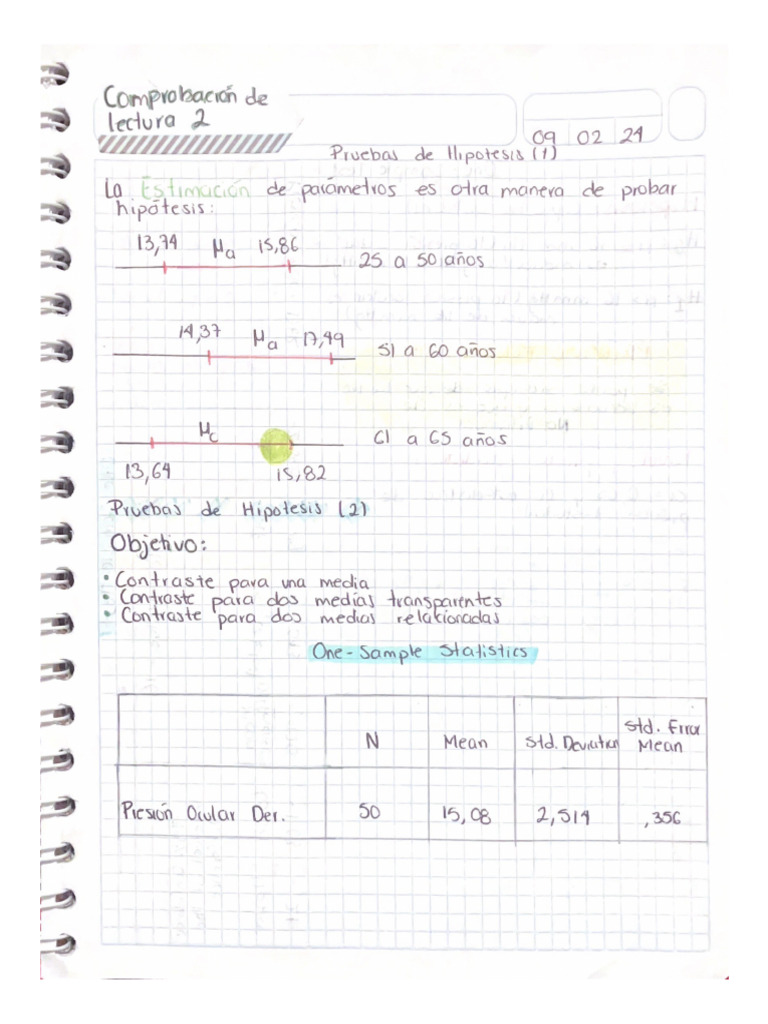 Comprobación de
lectura 2
09 02 24
Pruebas de Hipotesis (1)
La Estimación de parámetros es otra manera de probar
hipótesis:
13,74 μa 15,86
25 a 50 años
14,37 μa 17,49
51 a 60 años
μc
61 a 65 años
13,64 15,82
Pruebas de Hipotesis (2)
Objetivo:
• Contraste para una media
• Contraste para dos medias transparentes
• Contraste para dos medias relacionadas
One-Sample Statistics
N Mean Std. Deviation Std. Error Mean
Presión Ocular Der. 50 15,08 2,514 ,356